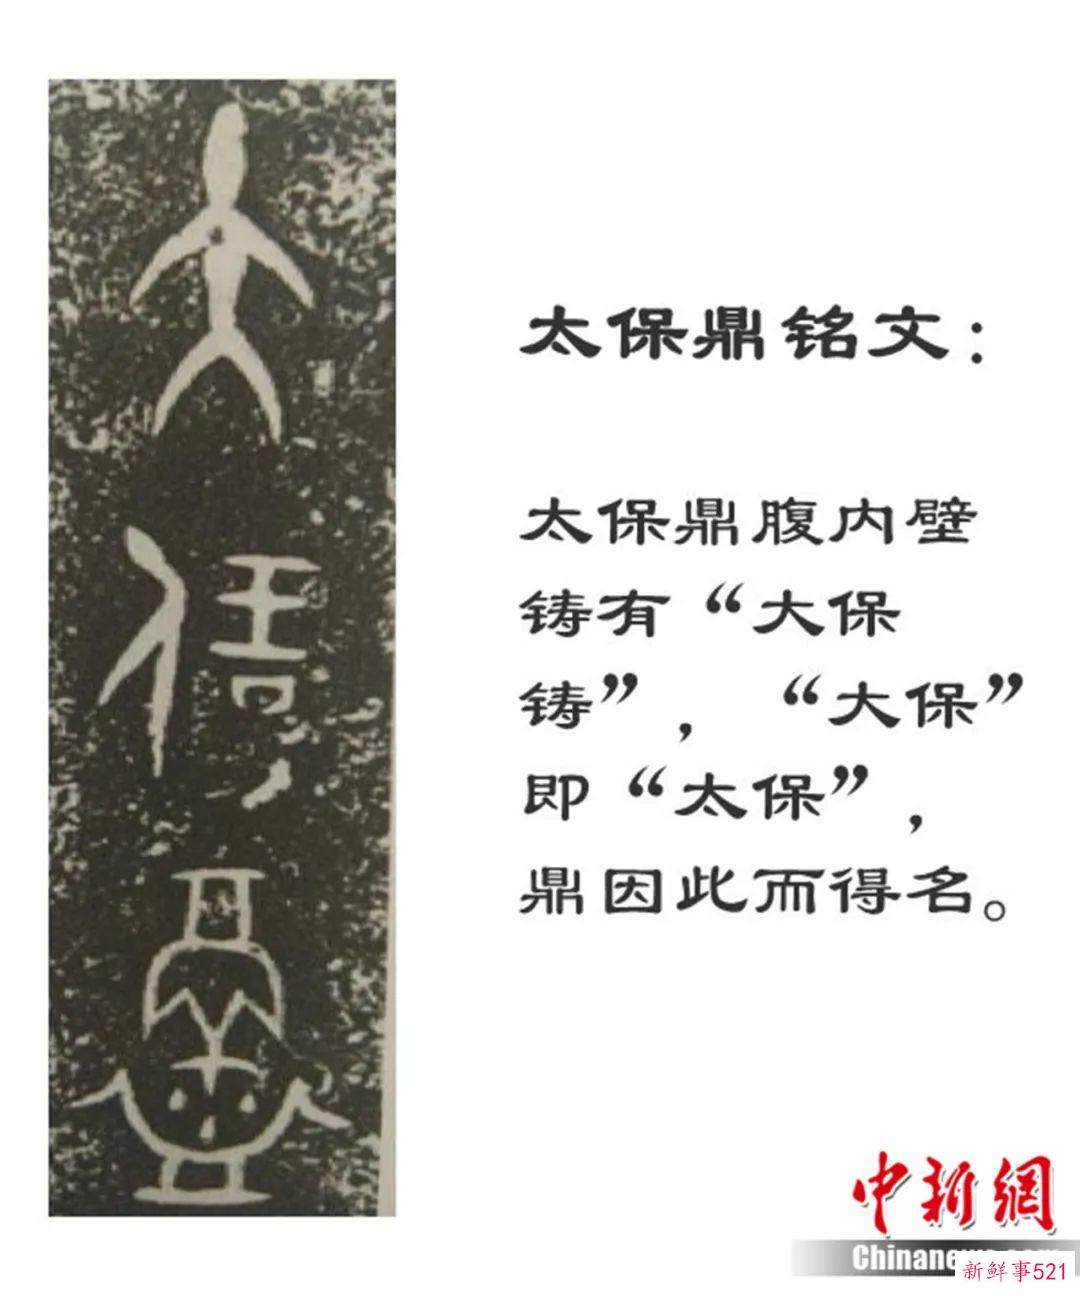 大
保
铸
太保鼎铭文：
太保鼎腹内壁
铸有“大保
铸”，“大保”
即“太保”，
鼎因此而得名。
中新網
Chinanews.com
新鲜事521